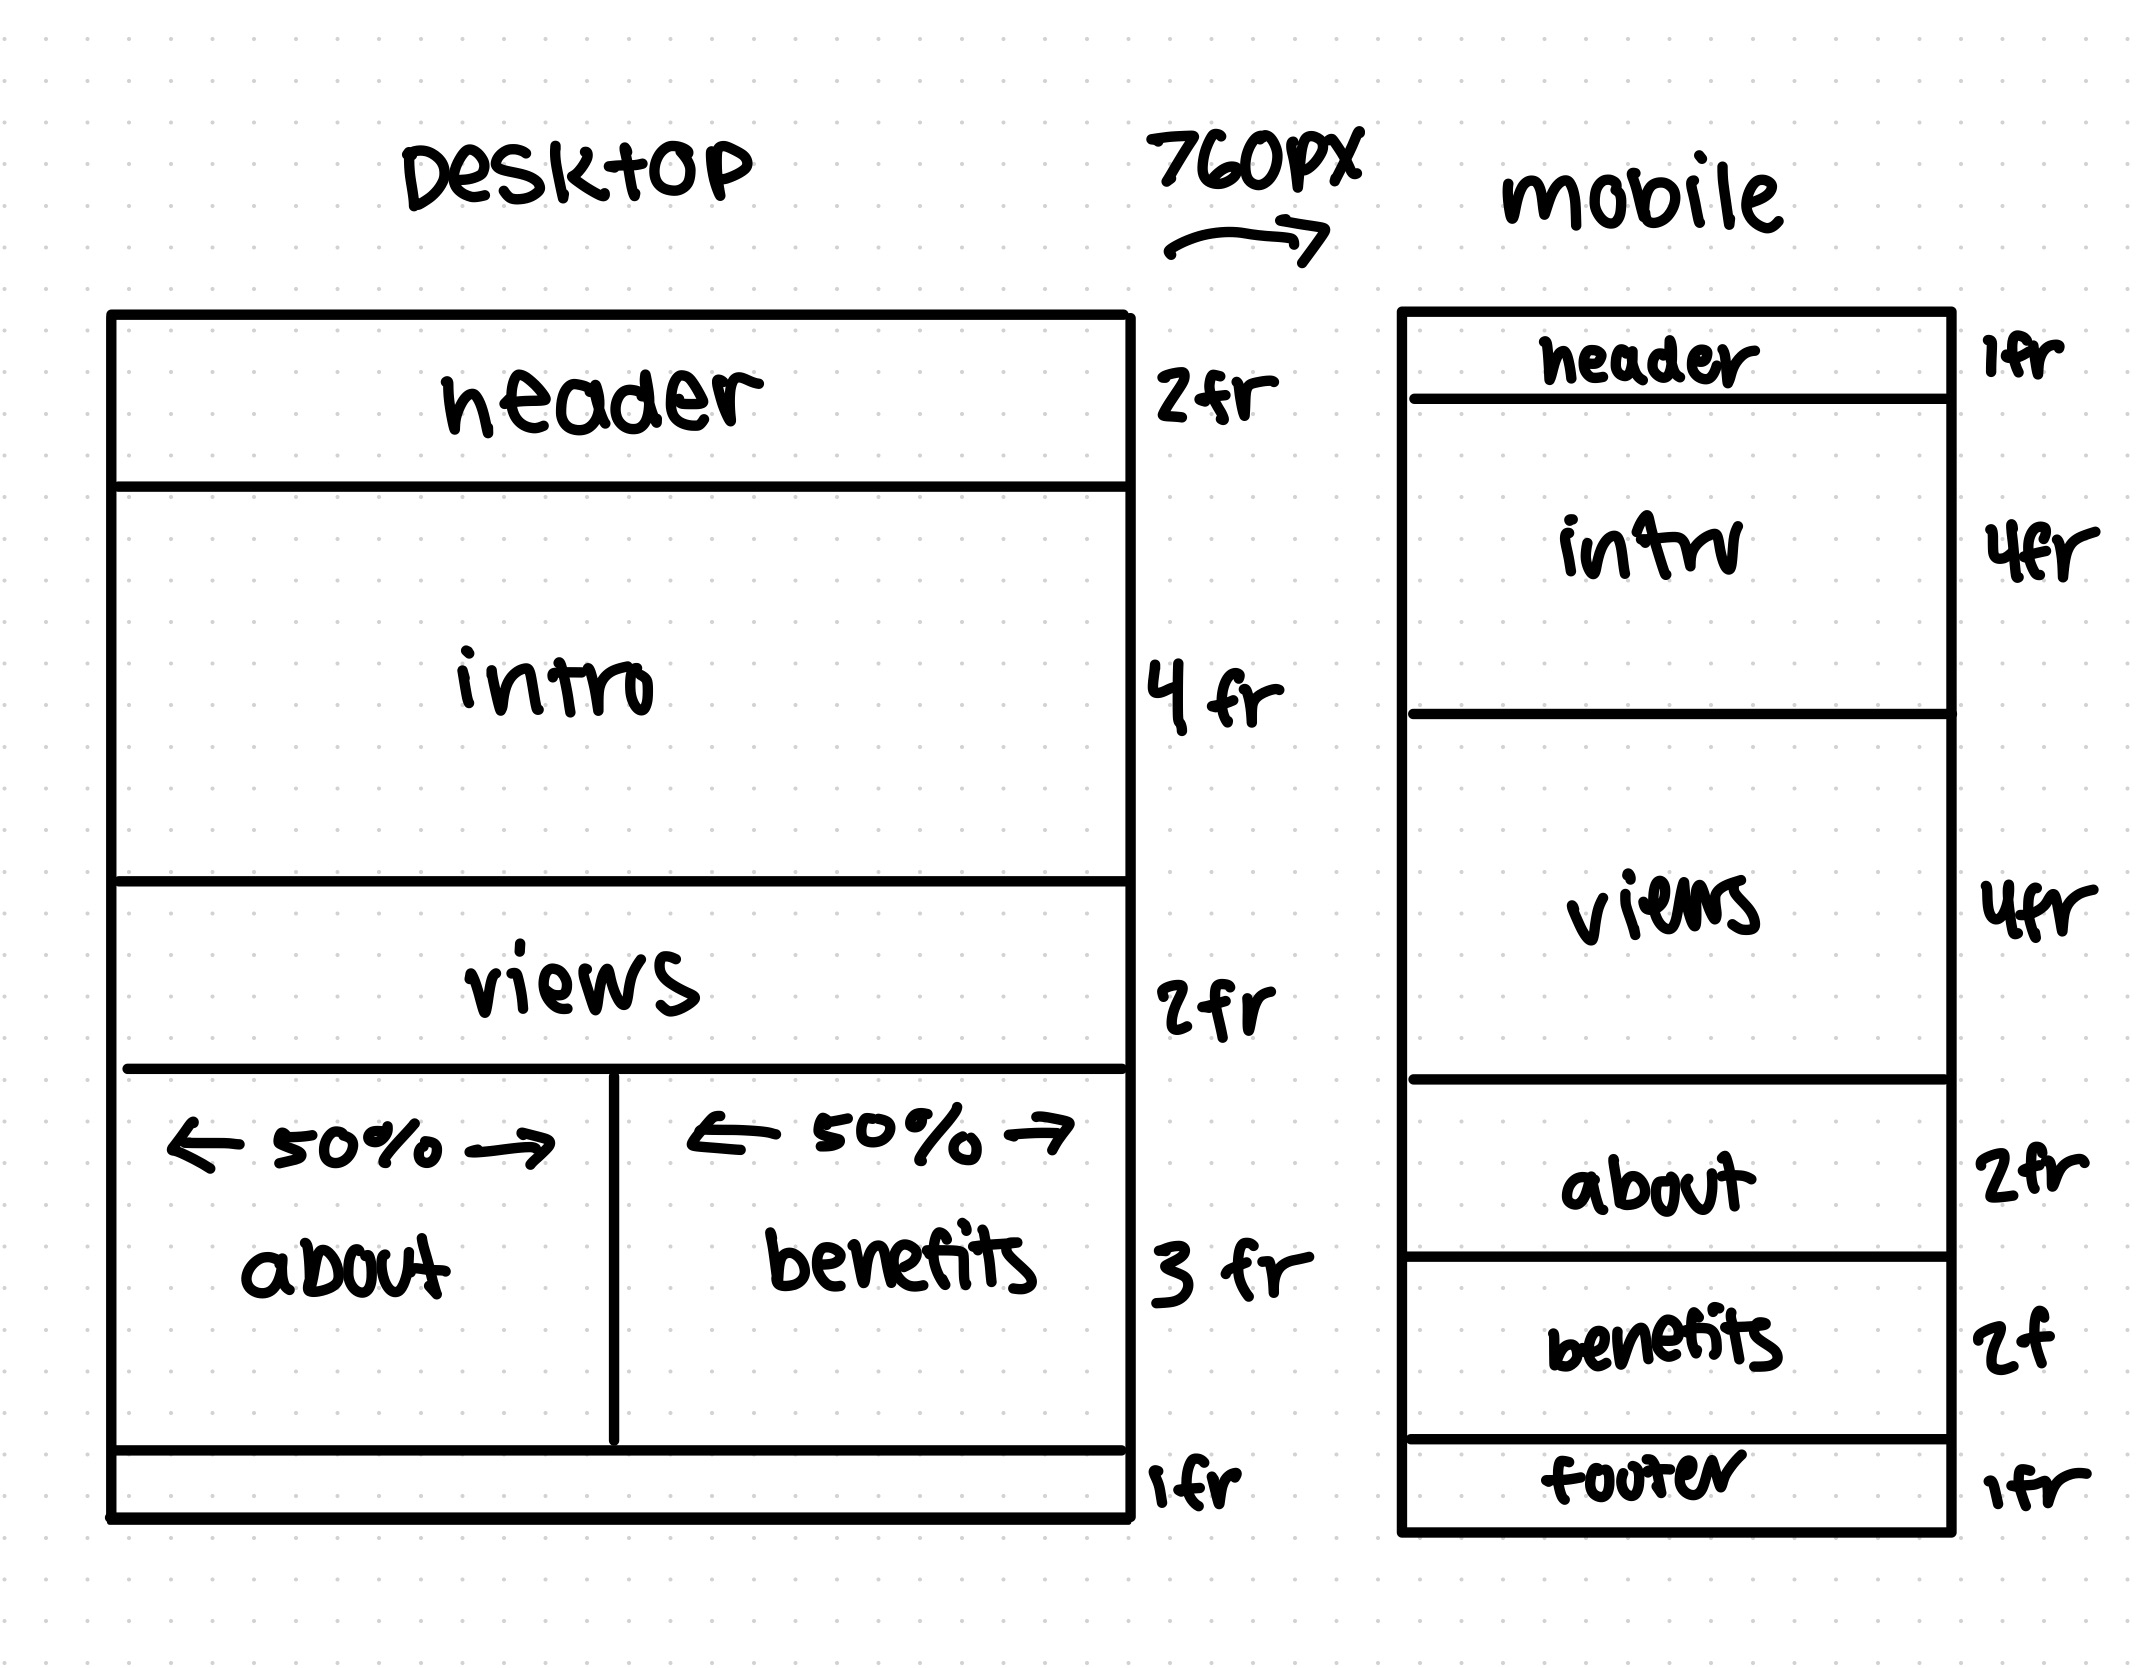 Desktop
760px
mobile
header
2fr
intro
4 fr
views
2fr
50%
50%
about
benefits
3 fr
1fr
header
1fr
intro
4fr
views
4fr
about
2fr
benefits
2f
footer
1fr